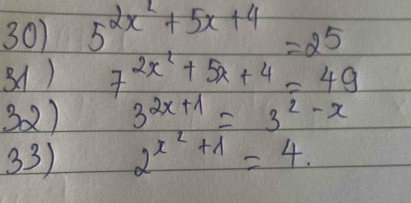 30) 5^{2x² + 5x + 4} = 25
31) 7^{2x² + 5x + 4} = 49
32) 3^{2x+1} = 3^{2-x}
33) 2^{x²+1} = 4.